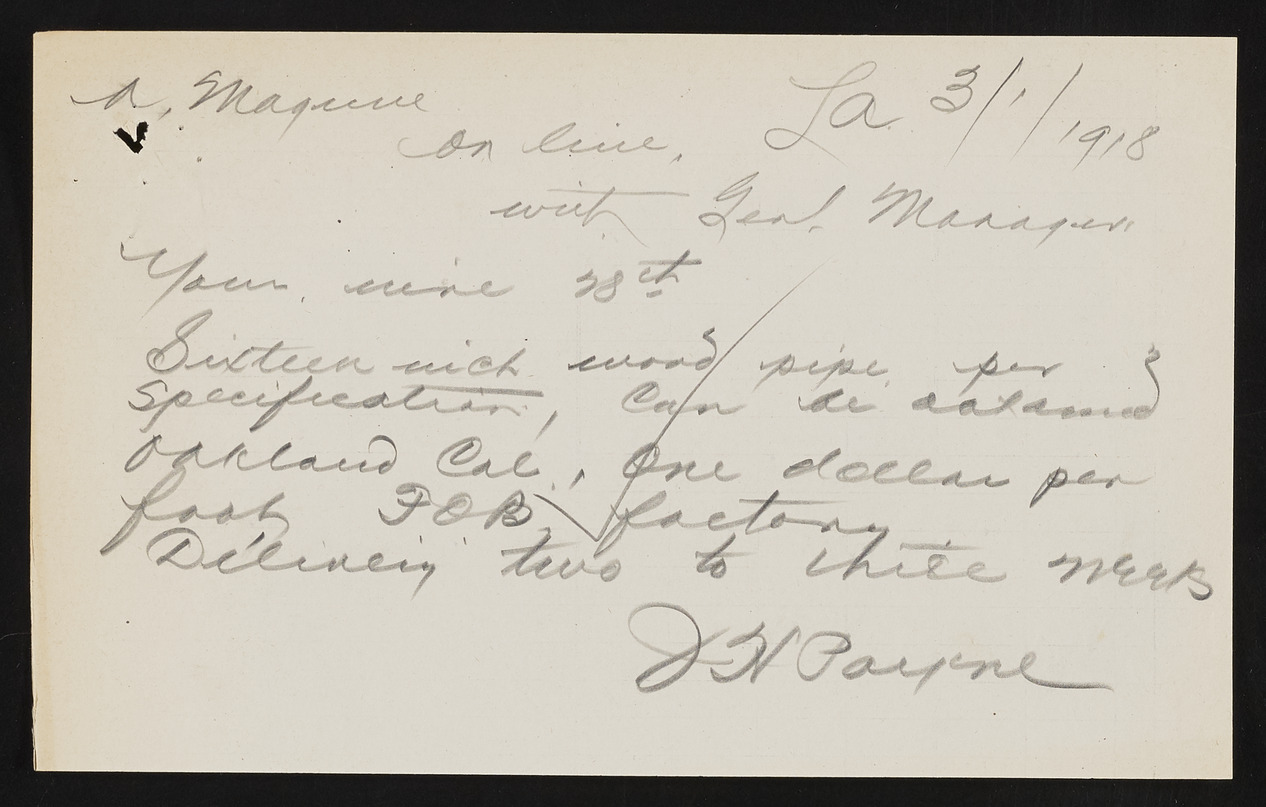 A. Maguire La 3/1/1918
on line,
with Genl Manager.
Your wire 28th
Sixteen inch wood pipe per
specification, Can be obtained
Oakland Cal., One dollar per
foot FOB factory
Delivery two to three weeks
J H Payne